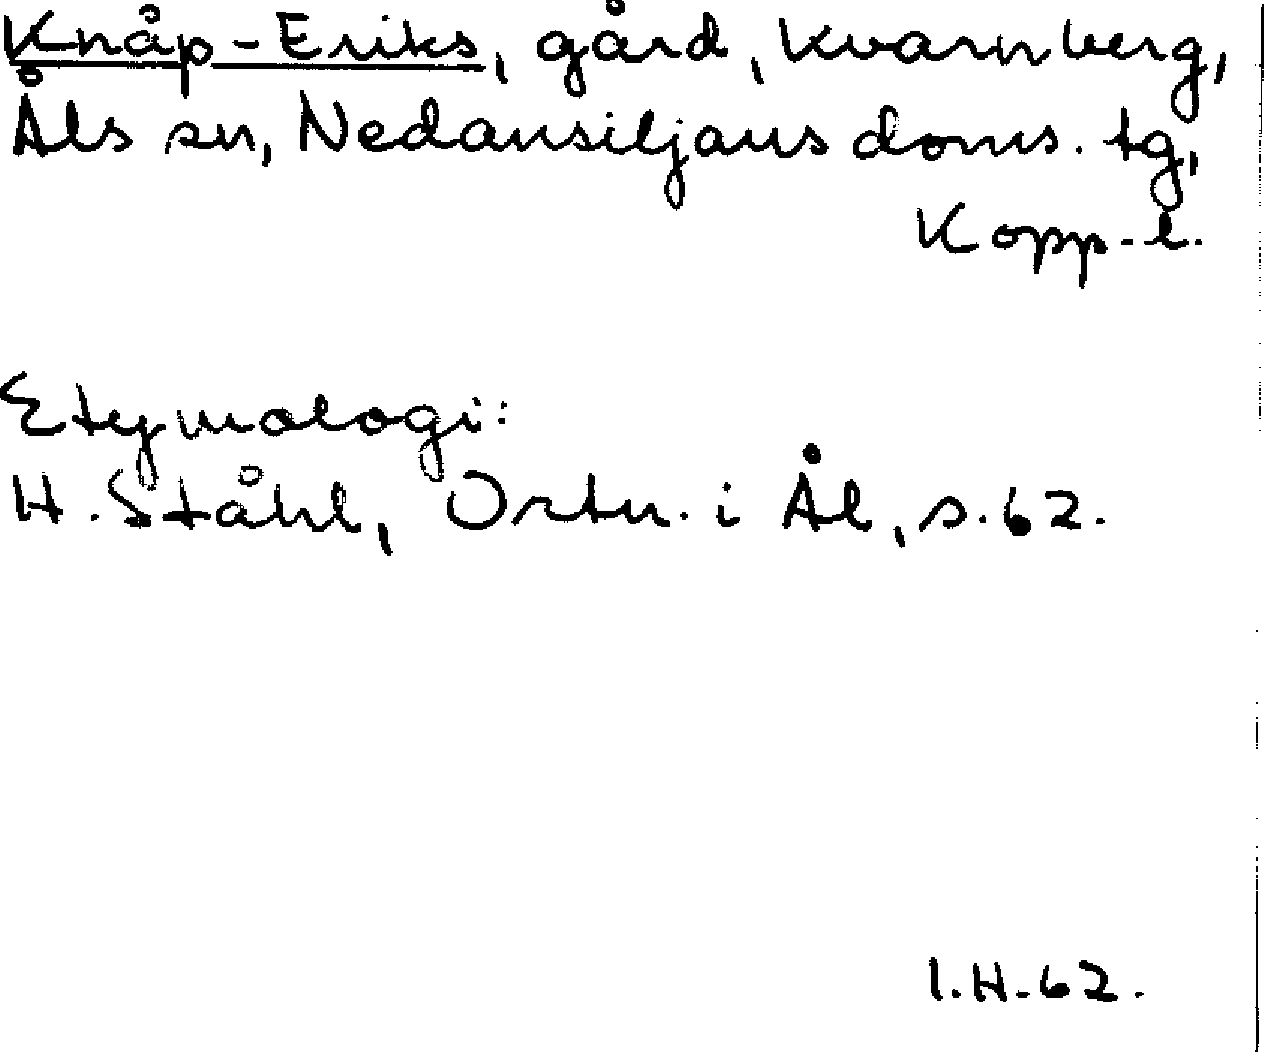 Knåp-Eriks, gård, Kvarnberg,
Åls sn, Nedansiljans doms. tg,
Kopp-l.
Etymologi:
H. Ståhl, Ortn. i Ål, s. 62.
I.H-62.